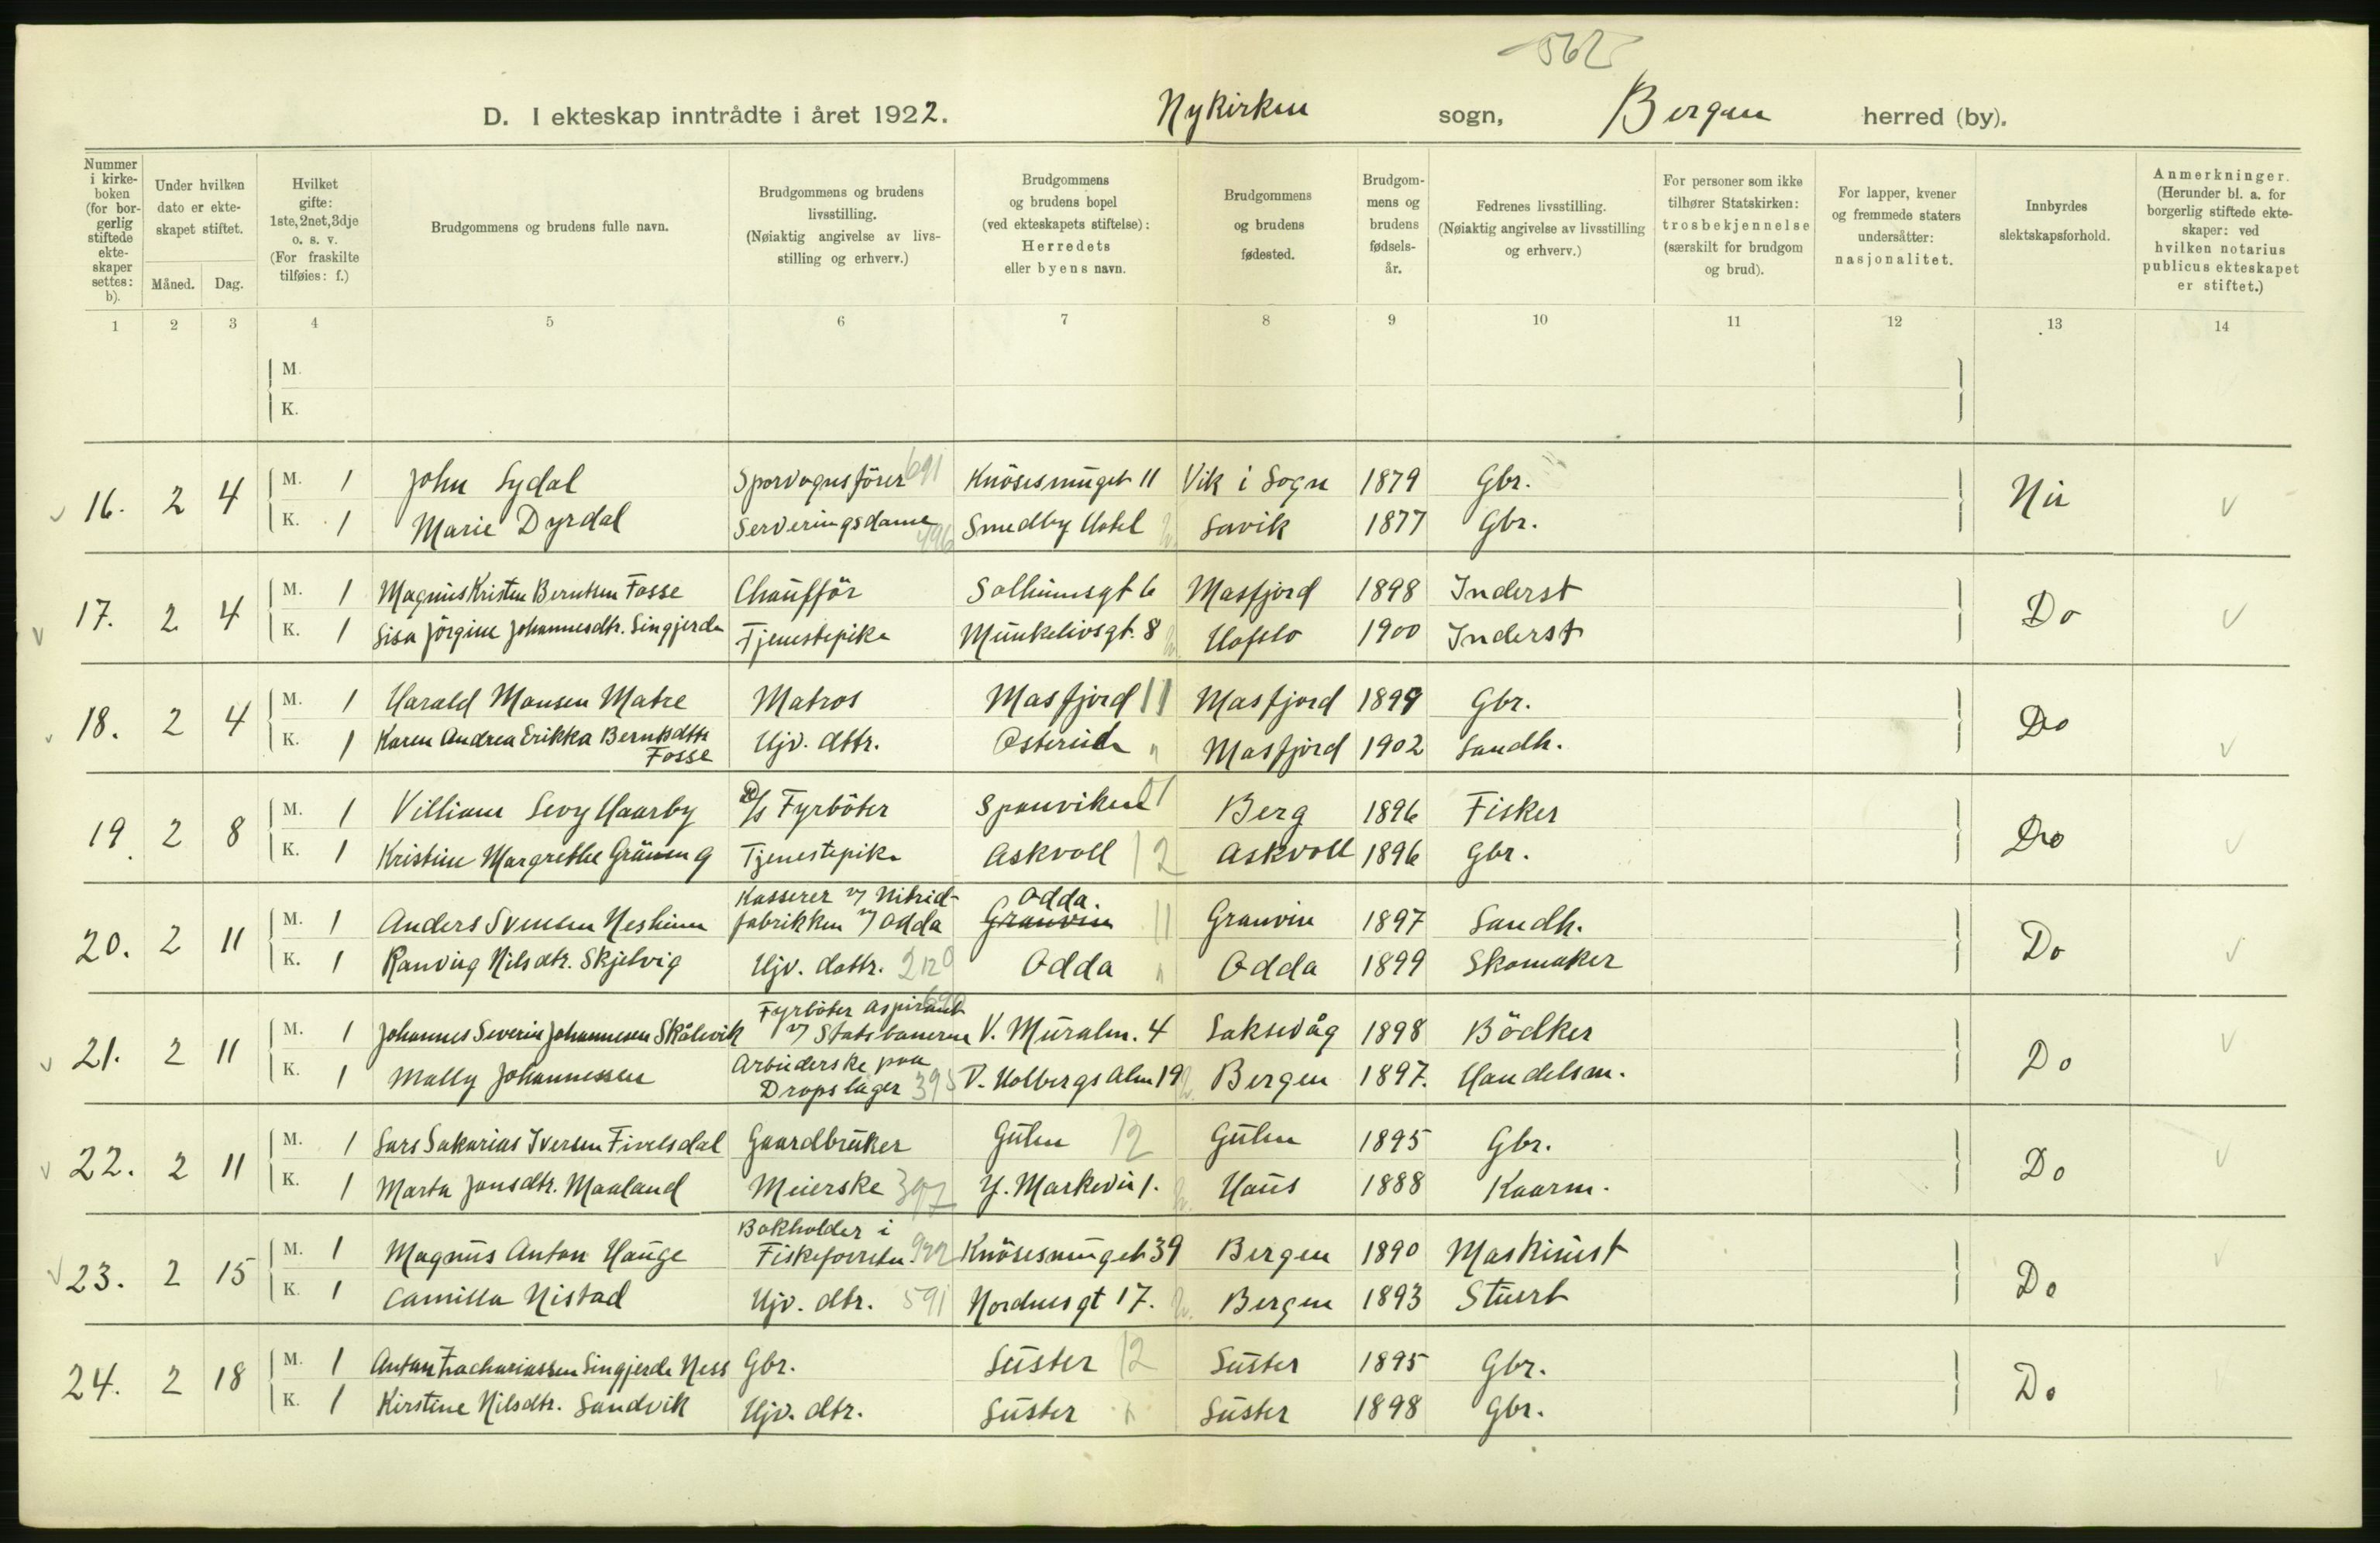 562
D. I ekteskap inntrådte i året 1922. Nykirken sogn, Bergen herred (by).
Nummer i kirkeboken (for borgerlig stiftede ekteskaper settes: b).
Under hvilken dato er ekteskapet stiftet.
Måned. Dag.
Hvilket gifte: 1ste, 2net, 3dje o. s. v. (For fraskilte tilføies: f.)
Brudgommens og brudens fulle navn.
Brudgommens og brudens livsstilling. (Nøiaktig angivelse av livsstilling og erhverv.)
Brudgommens og brudens bopel (ved ekteskapets stiftelse): Herredets eller byens navn.
Brudgommens og brudens fødested.
Brudgommens og brudens fødselsår.
Fedrenes livsstilling. (Nøiaktig angivelse av livsstilling og erhverv.)
For personer som ikke tilhører Statskirken: trosbekjennelse (særskilt for brudgom og brud).
For lapper, kvener og fremmede staters undersåtter: nasjonalitet.
Innbyrdes slektskapsforhold.
Anmerkninger. (Herunder bl. a. for borgerlig stiftede ekteskaper: ved hvilken notarius publicus ekteskapet er stiftet.)
1 2 3 4 5 6 7 8 9 10 11 12 13 14
M.
K.
16. 2 4 M. 1 John Lydal Sporvognsförer 691 Knösesmuget 11 Vik i Sogn 1879 Gbr. Nei
K. 1 Marie Dyrdal Serveringsdame 496 Smedby Hotel Lavik 1877 Gbr.
17. 2 4 M. 1 Magnus Kristen Berntsen Fosse Chaufför Solheimsgt 6 Masfjord 1898 Inderst Do
K. 1 Lisa Jörgine Johannesdtr. Lingjerde Tjenestepike Munkelivsgt. 8 Hafslo 1900 Inderst
18. 2 4 M. 1 Harald Monsen Matre Matros Masfjord 11 Masfjord 1899 Gbr. Do
K. 1 Karen Andrea Erikka Berntsdttr Fosse Hjv. dttr. Ostereide " Masfjord 1902 Landh.
19. 2 8 M. 1 Villiam Levy Haarby D/s Fyrböter Sponviken 01 Berg 1896 Fisker Do
K. 1 Kristine Margrethe Gräneng Tjenestepike Askvoll 12 Askvoll 1896 Gbr.
20. 2 11 M. 1 Anders Svensen Nesheim Kasserer v/ Nitridfabrikken v/ Odda Odda. Granvin 11 Granvin 1897 Landh. Do
K. 1 Ranveig Nilsdtr. Skjelvig Hjv. dottr. 2120 Odda " Odda 1899 Skomaker
21. 2 11 M. 1 Johannes Severin Johannesen Skålevik Fyrböter aspirant v/ Statsbanerne 690 V. Muralm. 4 Laksevåg 1898 Bödker Do
K. 1 Mally Johannessen Arbeiderske paa Dropslager 395 V. Holbergs Alm 19 Bergen 1897. Handelsm.
22. 2 11 M. 1 Lars Sakarias Iversen Fivelsdal Gaardbruker Gulen 12 Gulen 1895 Gbr. Do
K. 1 Marta Jonsdtr. Maaland Meierske 397 Y. Markevei 1. Haus 1888 Kaarm.
23. 2 15 M. 1 Magnus Anton Hauge Bokholder i Fiskeforretn. 922 Knösesmuget 39 Bergen 1890 Maskinist Do
K. 1 Camilla Nistad Hjv. dtr. 591 Nordnesgt 17. Bergen 1893 Stuert
24. 2 18 M. 1 Anton Zachariassen Lingjerde Ness Gbr. Luster 12 Luster 1895 Gbr. Do
K. 1 Kirstine Nilsdtr. Sandvik Hjv. dtr. Luster " Luster 1898 Gbr.